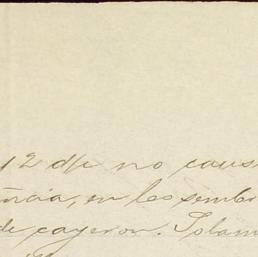 12 d/c no caus
ncia, en los sembr
de cayeron. Solam